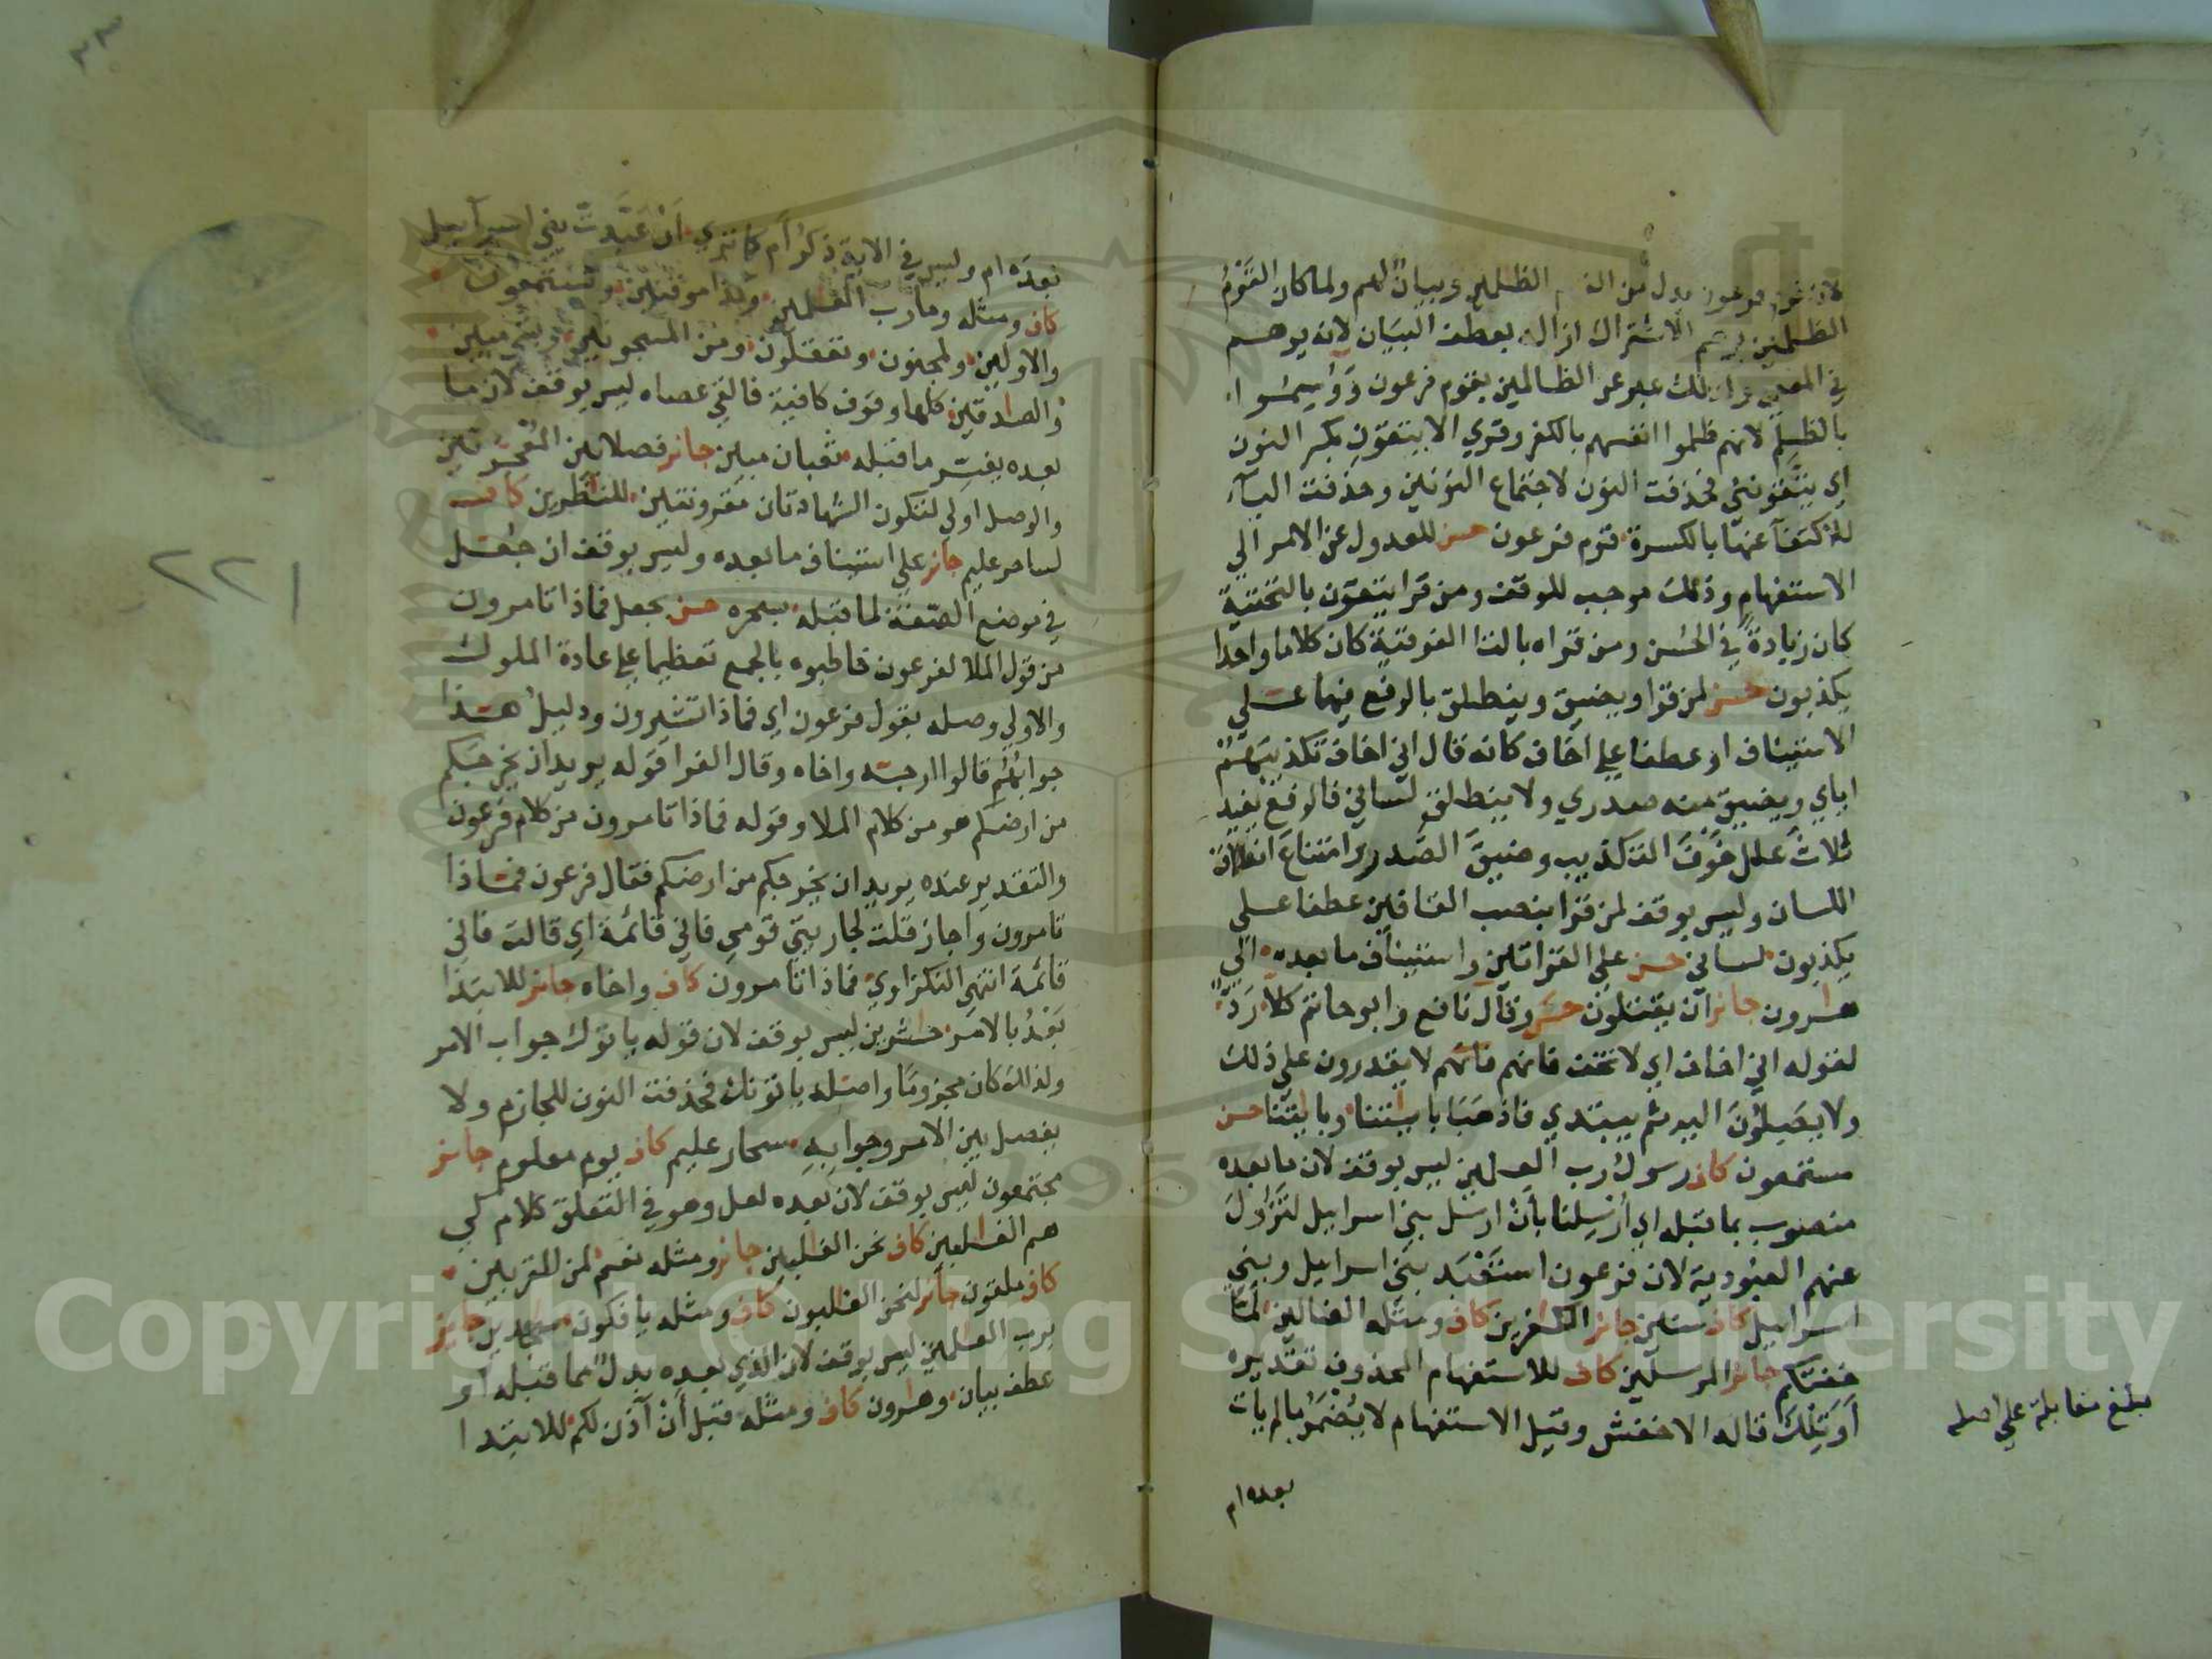 لان قوم فرعون بدل من القوم الظلمين وبيان لهم ولما كان القوم
الظلمين يوهم الاشتراك ازاله بعطف البيان لانه يوهم
في المعنى ولذلك عبر عن الظالمين بقوم فرعون ووسموا
بالظلم لانهم ظلموا انفسهم بالكفر وقري الا يتقون بكسر النون
اي يتقونني فحذفت النون لاجتماع النونين وحذفت الياء
للاكتفآ عنها بالكسرة قوم فرعون حسن للعدول عن الامر الي
الاستفهام وذلك موجب للوقف ومن قرا يتقون بالتحتية
كان زيادة في الحسن ومن قراه بالتا الفوقية كان كلاما واحدا
يكذبون حسن لمن قرا ويضيق وينطلق بالرفع فيهما علي
الاستيناف او عطفا علي اخاف كانه قال اني اخاف تكذيبهم
اياي ويضيق منه صدري ولا ينطلق لساني فالرفع يفيد
ثلاث علل خوف التكذيب وضيق الصدر وامتناع انطلاق
اللسان وليس بوقف لمن قرا بنصب القافين عطفا علي
يكذبون لساني حسن علي القراتين واستيناف ما بعده الي
هرون جائز ان يقتلون حسن وقال نافع وابو حاتم كلا رد
لقوله اني اخاف اي لا تخف فانهم لا يقدرون علي ذلك
ولا يصلون اليه ثم يبتدي فاذهبا باياتنا وباياتنا حسن
مستمعون كاف رسول رب العلمين ليس بوقف لان ما بعده
منصوب بما قبله اي ارسلنا بان ارسل بني اسراييل لتزول
عنهم العبودية لان فرعون استعبد بني اسراييل وبني
اسراييل كاف سنين جائز الكفرين كاف ومثله الضالين لما
خفتكم جائز المرسلين كاف للاستفهام المحذوف تقديره
أوتلك قاله الاخفش وقيل الاستفهام لا يضمر ما لم يات
بعده ام
بلغ مقابلة علي اصله
بعده ام وليس في الاية ذكر ام كما تري ان عبدت بني اسراييل
كاف ومثله وما رب العلمين وكذا موقنين وتستمعون
والاولين ولمجنون وتعقلون ومن المسجونين وبشي مبين
والصدقين كلها وقوف كافية فالقي عصاه ليس بوقف لان ما
بعده يفسر ما قبله ثعبان مبين جائز فصلا بين المعجزتين
والوصل اولي لتكون الشهادتان مقرونتين للنظرين كاف
لسحر عليم جائز علي استيناف ما بعده وليس بوقف ان جعل
في موضع الصفة لما قبله بسحره حسن بجعل فماذا تامرون
من قول الملا لفرعون خاطبوه بالجمع تعظيما علي عادة الملوك
والاولي وصله بقول فرعون اي فماذا تشيرون ودليل هذا
جوابهم قالوا ارجه واخاه وقال الفرا قوله يريد ان يخرجكم
من ارضكم هو من كلام الملا وقوله فماذا تامرون من كلام فرعون
والتقدير عنده يريد ان يخرجكم من ارضكم فقال فرعون فماذا
تامرون واجاز قلت لجاريتي قومي فاني قائمة اي قالت فاني
قائمة انتهي النكزاوي فماذا تامرون كاف واخاه جائز للابتدا
بعد بالامر حشرين ليس بوقف لان قوله ياتوك جواب الامر
ولذلك كان مجزوما واصله ياتونك فحذفت النون للجازم ولا
يفصل بين الامر وجوابه سحار عليم كاف يوم معلوم جائز
مجتمعون ليس بوقف لان بعده لعل وهو في التعلق كلام كي
هم الغلبين كاف نحن الغلبين جائز ومثله نعم لمن المقربين
كاف ملقون جائز لنحن الغلبون كاف ومثله يافكون سجدين جائز
برب العلمين ليس بوقف لان الذي بعده بدل مما قبله او
عطف بيان وهرون كاف ومثله قبل أن آذن لكم للابتدا
٢٢١